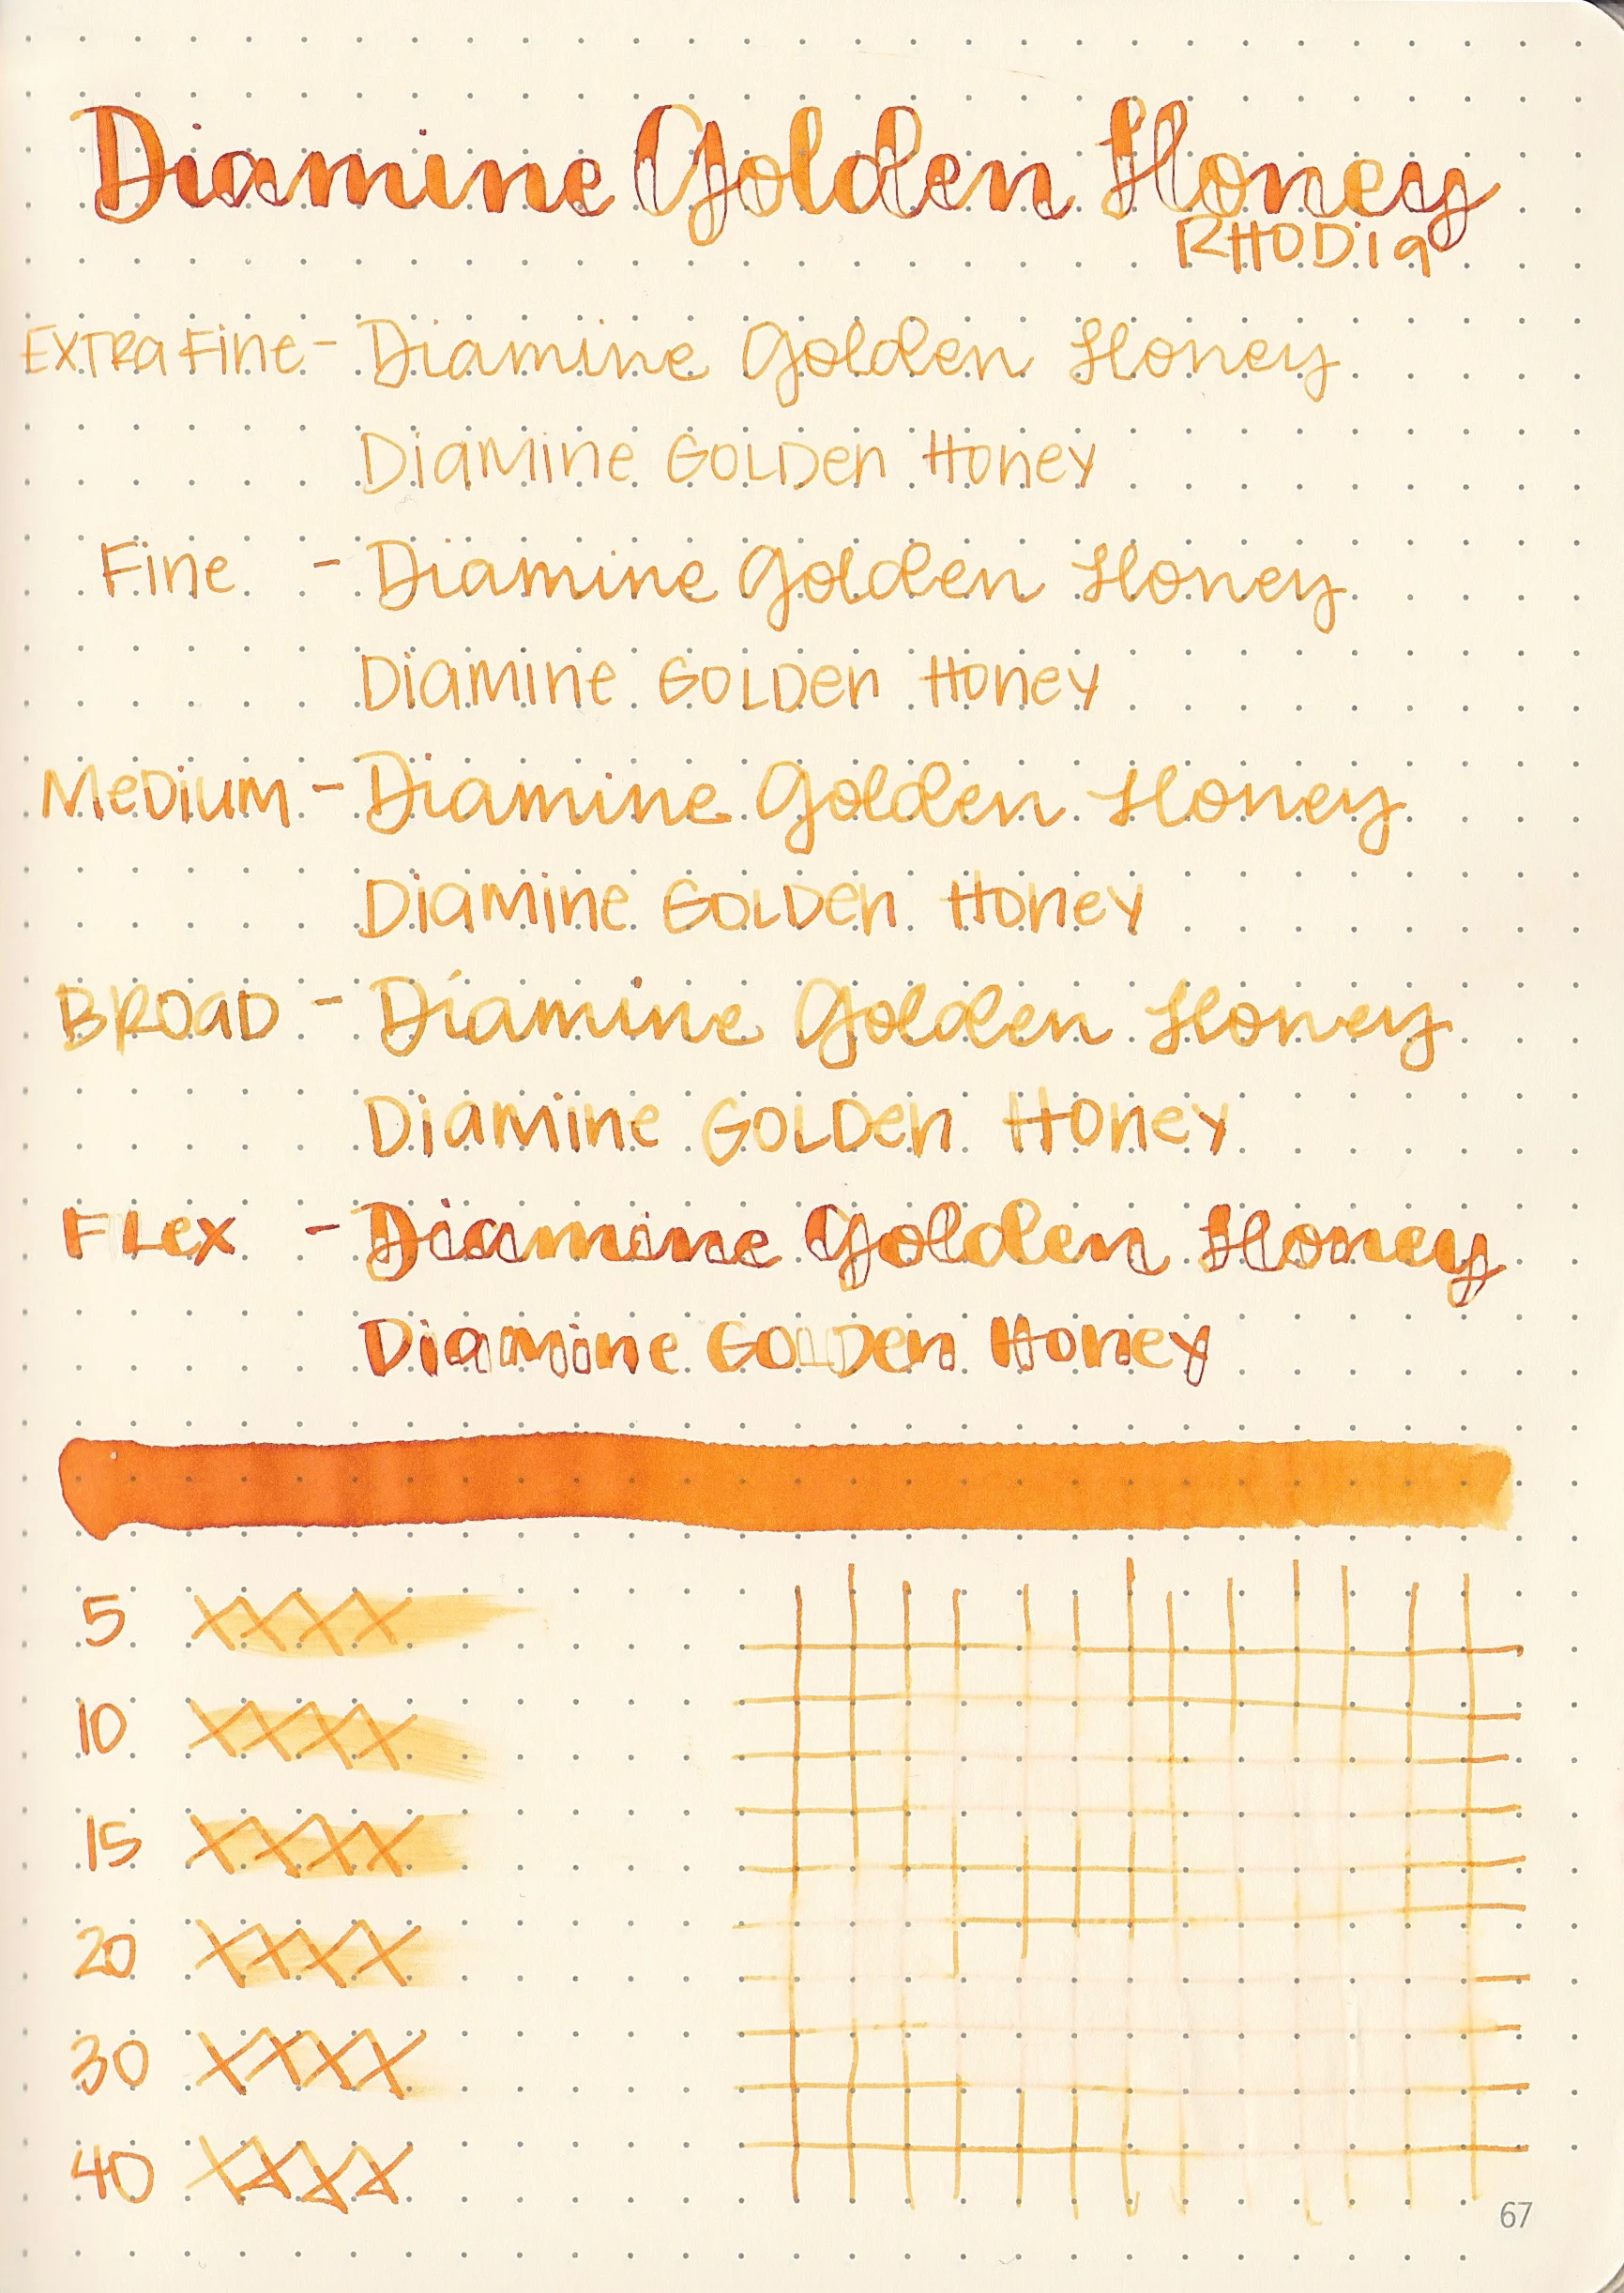 Diamine Golden Honey
RHODIA
EXTRA FINE - Diamine Golden Honey
Diamine GOLDen Honey
Fine - Diamine Golden Honey
Diamine GOLDen Honey
MeDium - Diamine Golden Honey
Diamine GOLDen Honey
BROAD - Diamine Golden Honey
Diamine GOLDen Honey
FLex - Diamine Golden Honey
Diamine GOLDen Honey
5 XXXX
10 XXXX
15 XXXX
20 XXXX
30 XXXX
40 XXXX
67